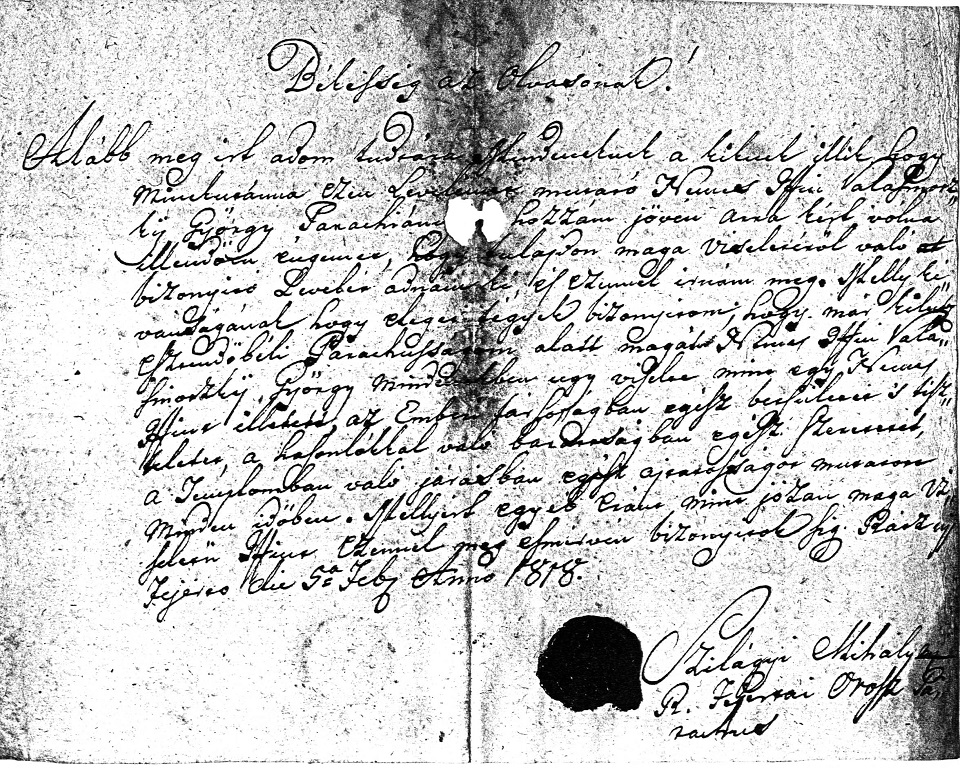 Békesség az Olvasónak!
Alább meg irt adom tudtára Mindeneknek a kiknek illik hogy
Minekutánna ezen Levelemet mutató Nemes Iffiu Valasmorsz„
kij György Parachiám hozzám jövén arra kért volna
illendöen éngemet, hogy tulajdon maga viseletéröl való
bizonyitó Levelet adnám ki és ezennel irnám meg. Melly ki„
vánságának hogy eleget tégyek bizonyitom, hogy már kilentz
esztendöbéli Parachusságom alatt magát Nemes Iffiu Vala„
smorszkij György mindenekben ugy viselte mint egy Nemes
Iffiut illetett, az Emberi társoságban egész betsületet 's tisz„
teletet, a hasonlókkal való barátságban egész szeretetet,
a Templomban való járásban egész ajtatosságot mutatott
Minden idöben. Mellyért egyet ertvet mint józan maga vi„
seletü Iffiut Ezennel meg esmervén bizonyitok sig. Rácz
Fejerto die 5a Feb Anno 1818.
Szilágyi Mihály
R. Fejertai Orosz Pa„
rachus